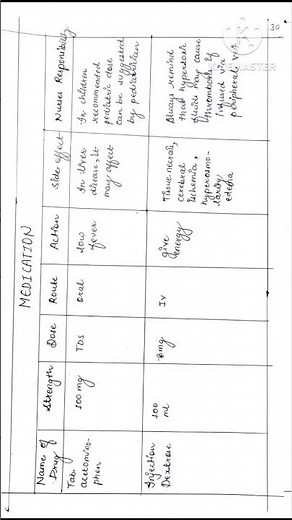 30
MEDICATION
Name of Drug
Strength
Dose
Route
Action
Side effect
Nurses Responsibility
Tab. acetomino-
phen
100 mg
TDS
oral
low
fever
In liver
disease, it
may affect
In children
recommended
pediatric dose
can be suggested
by pediatrician
Injection
Dextrose
100
ml
IV
give
energy
Tissue necrosis,
cerebral
Ischemia,
hyperosmo-
larity
edema
Always remind
that hypertonic
fluid may cause
thrombosis if
infused via
peripheral